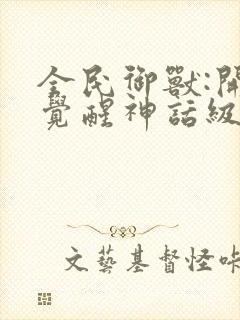 全民御獸:開
覺醒神話級
文藝基督怪咔